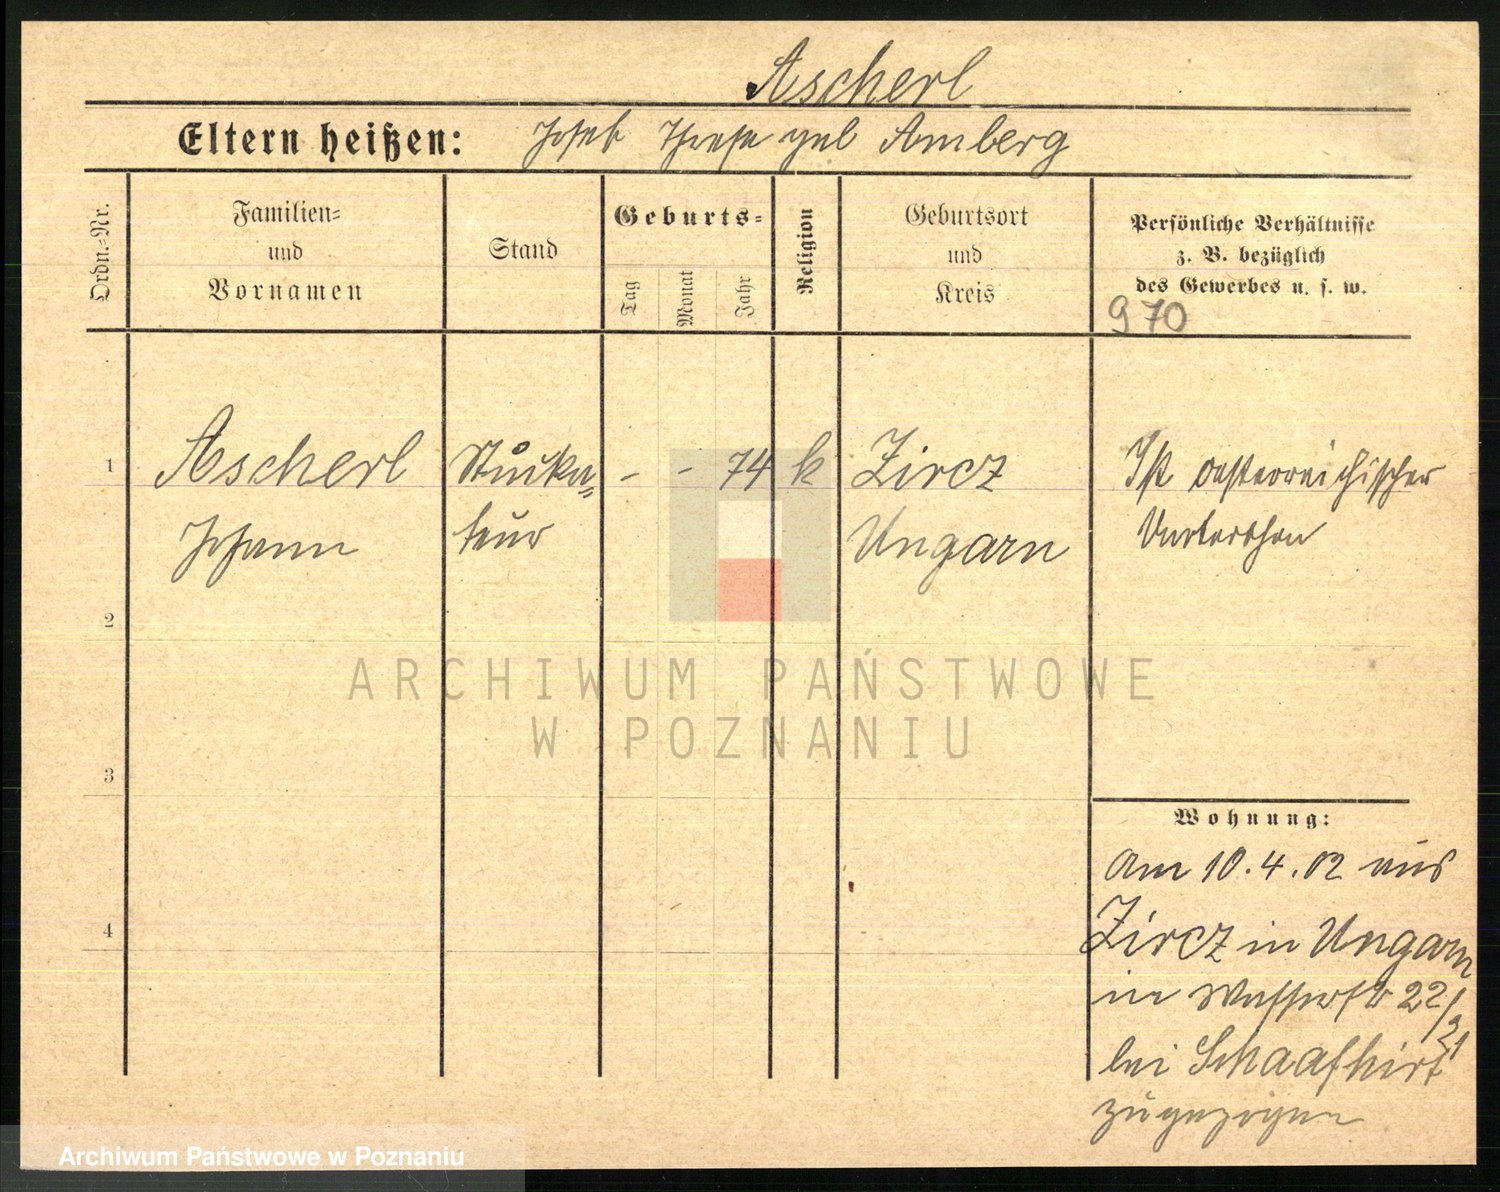 Ascherl
Eltern heißen: Josef Therese geb Amberg
Ordn.=Nr.
Familien=
und
Vornamen
Stand
Geburts=
Tag
Monat
Jahr
Religion
Geburtsort
und
Kreis
Persönliche Verhältnisse
z. B. bezüglich
des Gewerbes u. s. w.
970
1 Ascherl Stucka= - - 74 k Zircz Ist oesterreichischer
Johann teur Ungarn Unterthan
2
3
4
Wohnung:
Am 10.4.02 aus
Zircz in Ungarn
in Wasserstr 22/21
bei Schaafhirt
zugezogen
ARCHIWUM PAŃSTWOWE
W POZNANIU
Archiwum Państwowe w Poznaniu